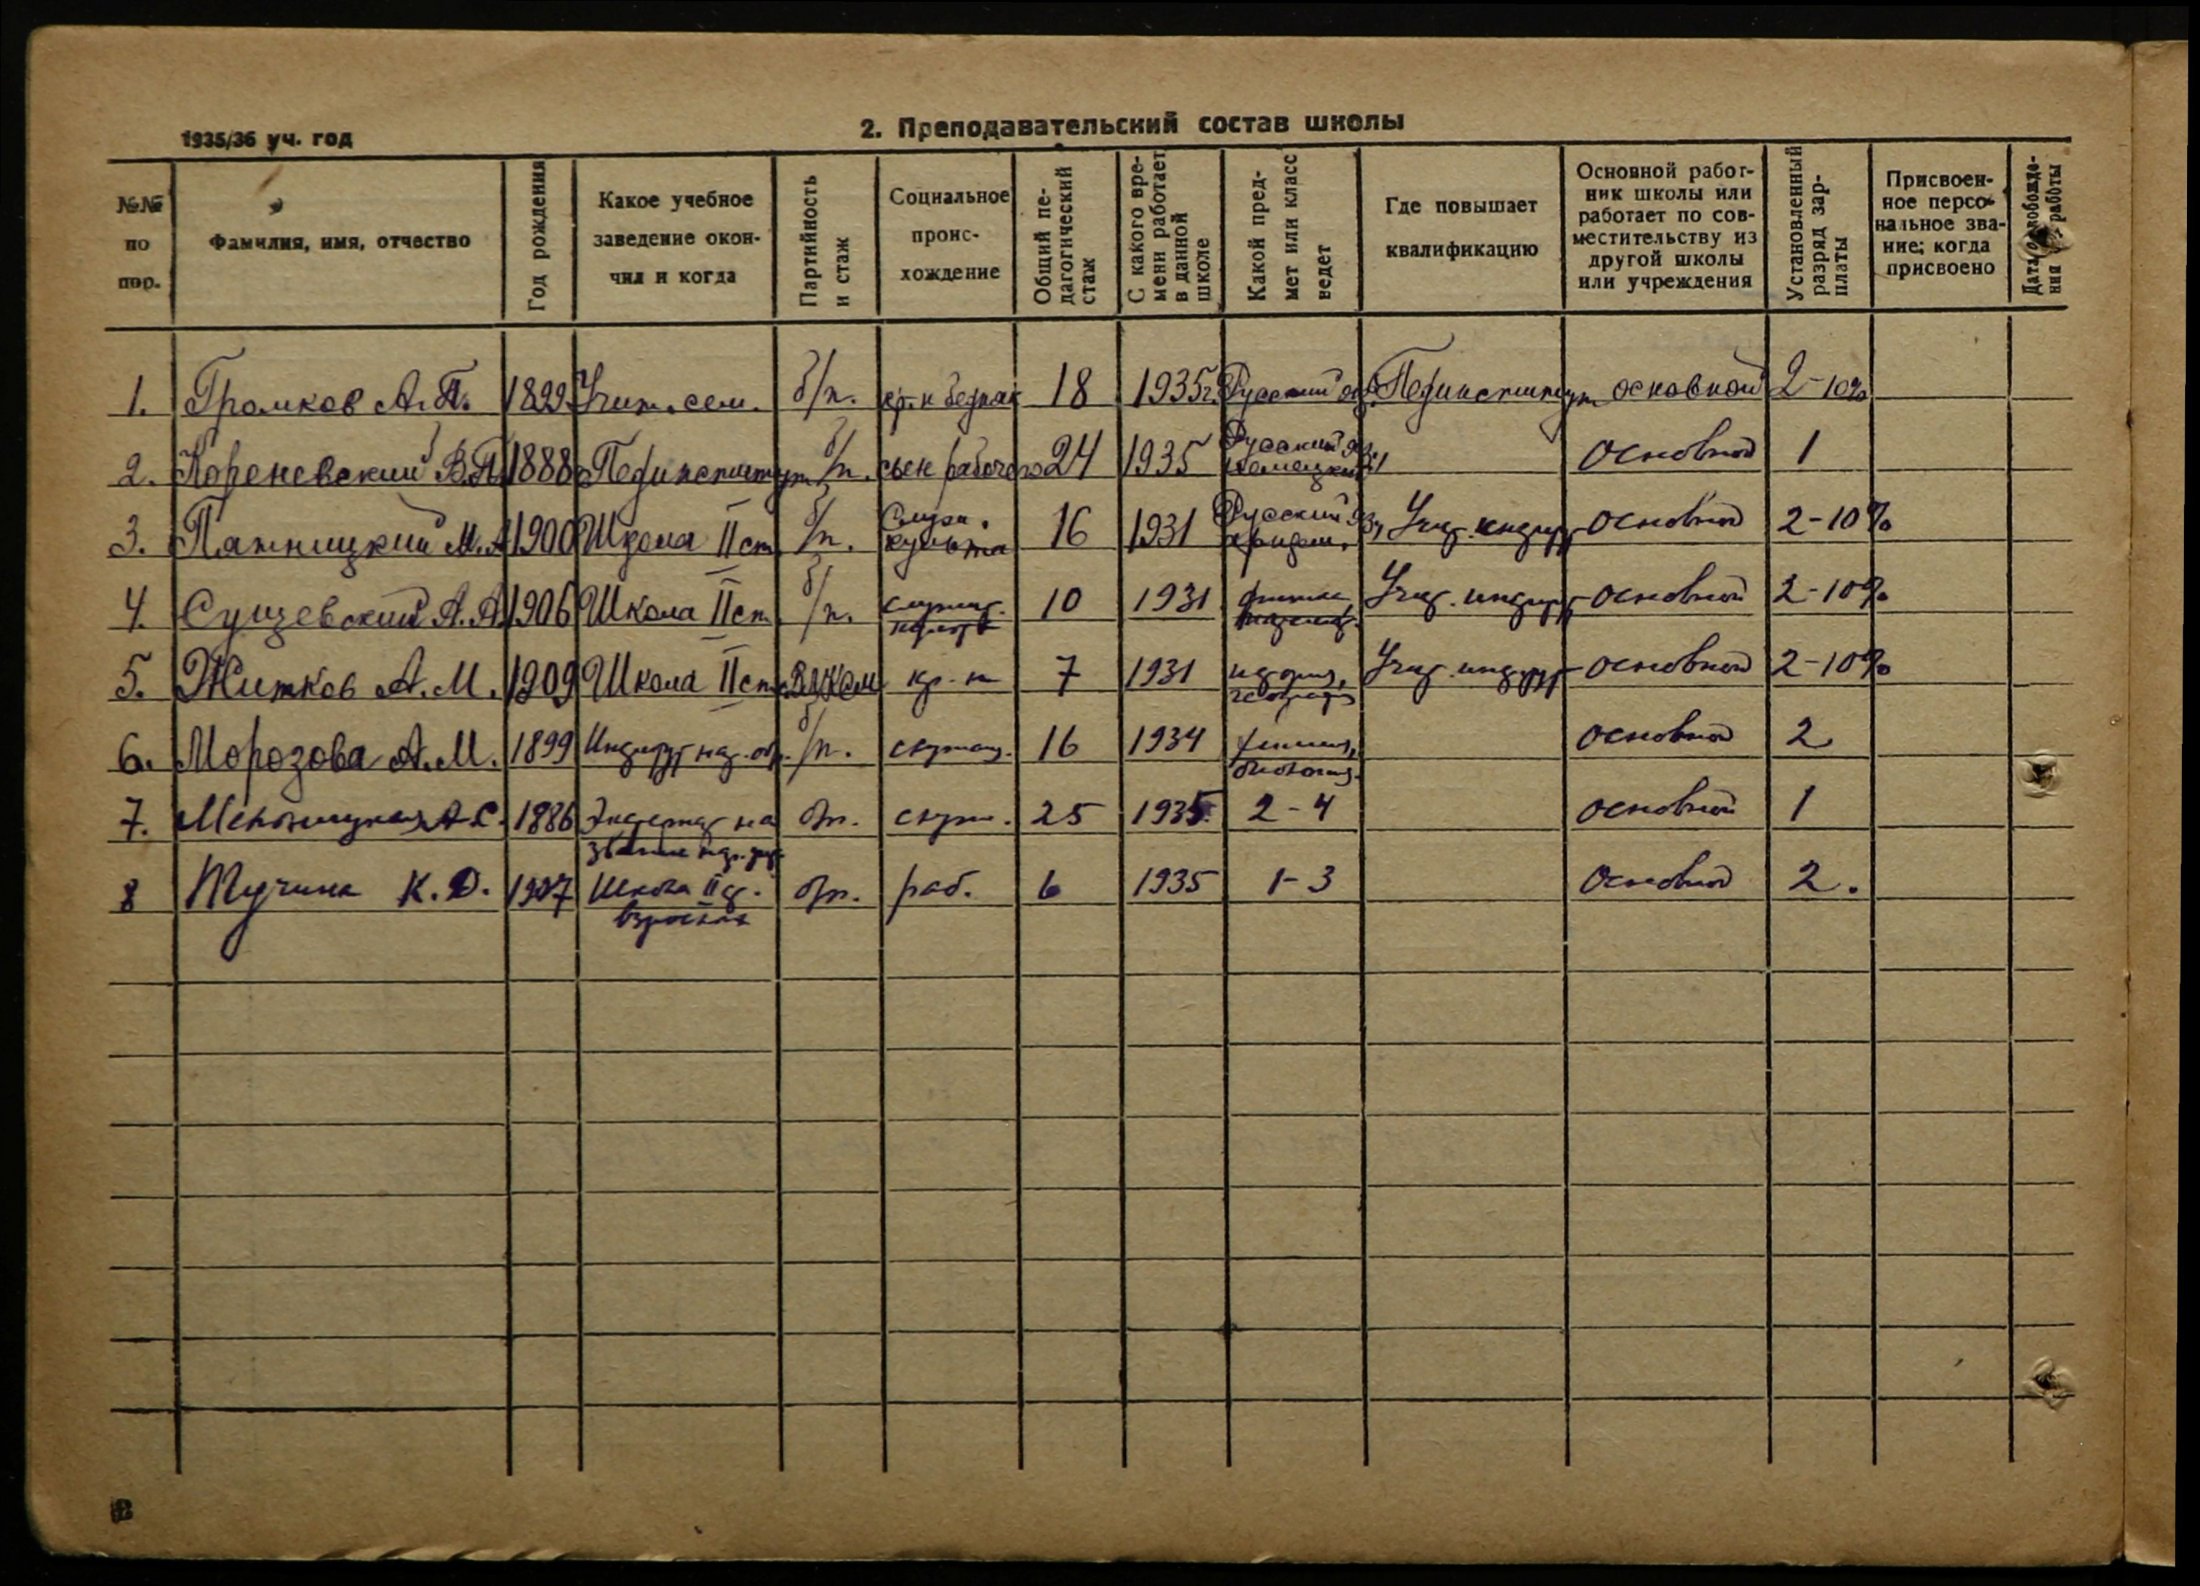 1935/36 уч. год
2. Преподавательский состав школы
№№ по пор.
Фамилия, имя, отчество
Год рождения
Какое учебное заведение окончил и когда
Партийность и стаж
Социальное происхождение
Общий педагогический стаж
С какого времени работает в данной школе
Какой предмет или класс ведет
Где повышает квалификацию
Основной работник школы или работает по совместительству из другой школы или учреждения
Установленный разряд зарплаты
Присвоенное персональное звание; когда присвоено
Дата освобождения работы
1. Громков А.П. 1899 Учит. сем. б/п. кр-н бедняк 18 1935г. Русский яз. Пединститут основной 2-10%
2. Кореневский В.П. 1888 Пединститут б/п. сын рабочего 24 1935 Русский яз. немецкий основной 1
3. Пятницкий М.А 1900 Школа II ст. б/п. Служ. культа 16 1931 Русский яз, Учит. институт основной 2-10%
4. Сущевский А.А. 1906 Школа II ст. б/п. служит. культа 10 1931 физика, математ. Учит. институт основной 2-10%
5. Житков А.М. 1909 Школа II ст. ВЛКСМ кр-н 7 1931 история, география Учит. институт основной 2-10%
6. Морозова А.М. 1899 Институт нар. обр. б/п. служащ. 16 1934 химия, биология основной 2
7. А.С. 1886 Экстернат на звание нар. уч. б/п. служ. 25 1935 2-4 основной 1
8 Тучина К.Д. 1907 Школа II ст. взрослых б/п. раб. 6 1935 1-3 основной 2.